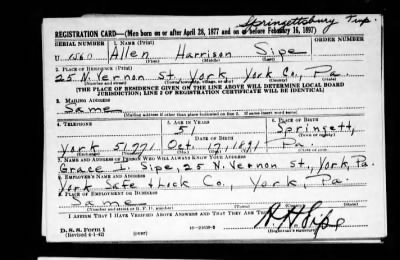 Springettsbury Twp.
REGISTRATION CARD—(Men born on or after April 28, 1877 and on or before February 16, 1897)
SERIAL NUMBER 1. NAME (Print) ORDER NUMBER
U Allen Harrison Sipe
(First) (Middle) (Last)
2. PLACE OF RESIDENCE (Print)
25 N. Vernon St., York York Co., Pa.
(Number and street) (Town, township, village, or city) (County) (State)
[THE PLACE OF RESIDENCE GIVEN ON THE LINE ABOVE WILL DETERMINE LOCAL BOARD
JURISDICTION; LINE 2 OF REGISTRATION CERTIFICATE WILL BE IDENTICAL]
3. MAILING ADDRESS
Same
[Mailing address if other than place indicated on line 2. If same insert word same]
4. TELEPHONE 5. AGE IN YEARS 6. PLACE OF BIRTH
51 Springett,
DATE OF BIRTH (Town or county)
York 51,771 Oct. 17, 1891 Pa.
(Exchange) (Number) (Mo.) (Day) (Yr.) (State or country)
7. NAME AND ADDRESS OF PERSON WHO WILL ALWAYS KNOW YOUR ADDRESS
Grace I. Sipe, 25 N. Vernon St., York, Pa.
8. EMPLOYER'S NAME AND ADDRESS
York Safe & Lock Co., York, Pa.
9. PLACE OF EMPLOYMENT OR BUSINESS
Same
(Number and street or R. F. D. number) (Town) (County) (State)
I AFFIRM THAT I HAVE VERIFIED ABOVE ANSWERS AND THAT THEY ARE TRUE.
D. S. S. Form 1
(Revised 4-1-42) (over) A. H. Sipe
(Registrant's signature)